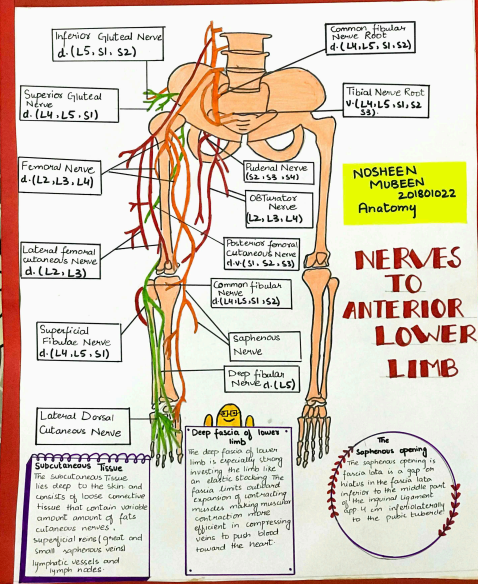 Inferior Gluteal Nerve
d.(L5, S1, S2)
Common fibular
Nerve Root
d.(L4, L5, S1, S2)
Superior Gluteal
Nerve
d.(L4, L5, S1)
Tibial Nerve Root
v.(L4, L5, S1, S2
S3).
Femoral Nerve
d.(L2, L3, L4)
Pudenal Nerve
(S2, S3, S4)
OBTurator
Nerve
(L2, L3, L4)
NOSHEEN
MUBEEN
201801022
Anatomy
Lateral femoral
cutaneous Nerve
d.(L2, L3)
Posterior femoral
Cutaneous Nerve
d.v.(S1, S2, S3)
Common fibular
Nerve
d.(L4, L5, S1, S2)
NERVES
TO
ANTERIOR
LOWER
LIMB
Superficial
Fibulae Nerve
d.(L4, L5, S1)
Saphenous
Nerve
Deep fibular
Nerve d.(L5)
Lateral Dorsal
Cutaneous Nerve
Subcutaneous Tissue
The subcutaneous tissue
lies deep to the skin and
consists of loose connective
tissue that contain variable
amount amount of fats
cutaneous nerves,
superficial veins (great and
small saphenous veins)
lymphatic vessels and
lymph nodes.
Deep fascia of lower
limb
The deep fascia of lower
limb is especially strong
investing the limb like
an elastic stocking The
fascia limits outward
expansion of contracting
muscles making muscular
contraction more
efficient in compressing
veins to push blood
toward the heart.
The
Saphenous opening
The saphenous opening is
fascia lata is a gap or
hiatus in the fascia lata
inferior to the middle part
of the inguinal ligament
app 4 cm inferiolaterally
to the pubic tubercle